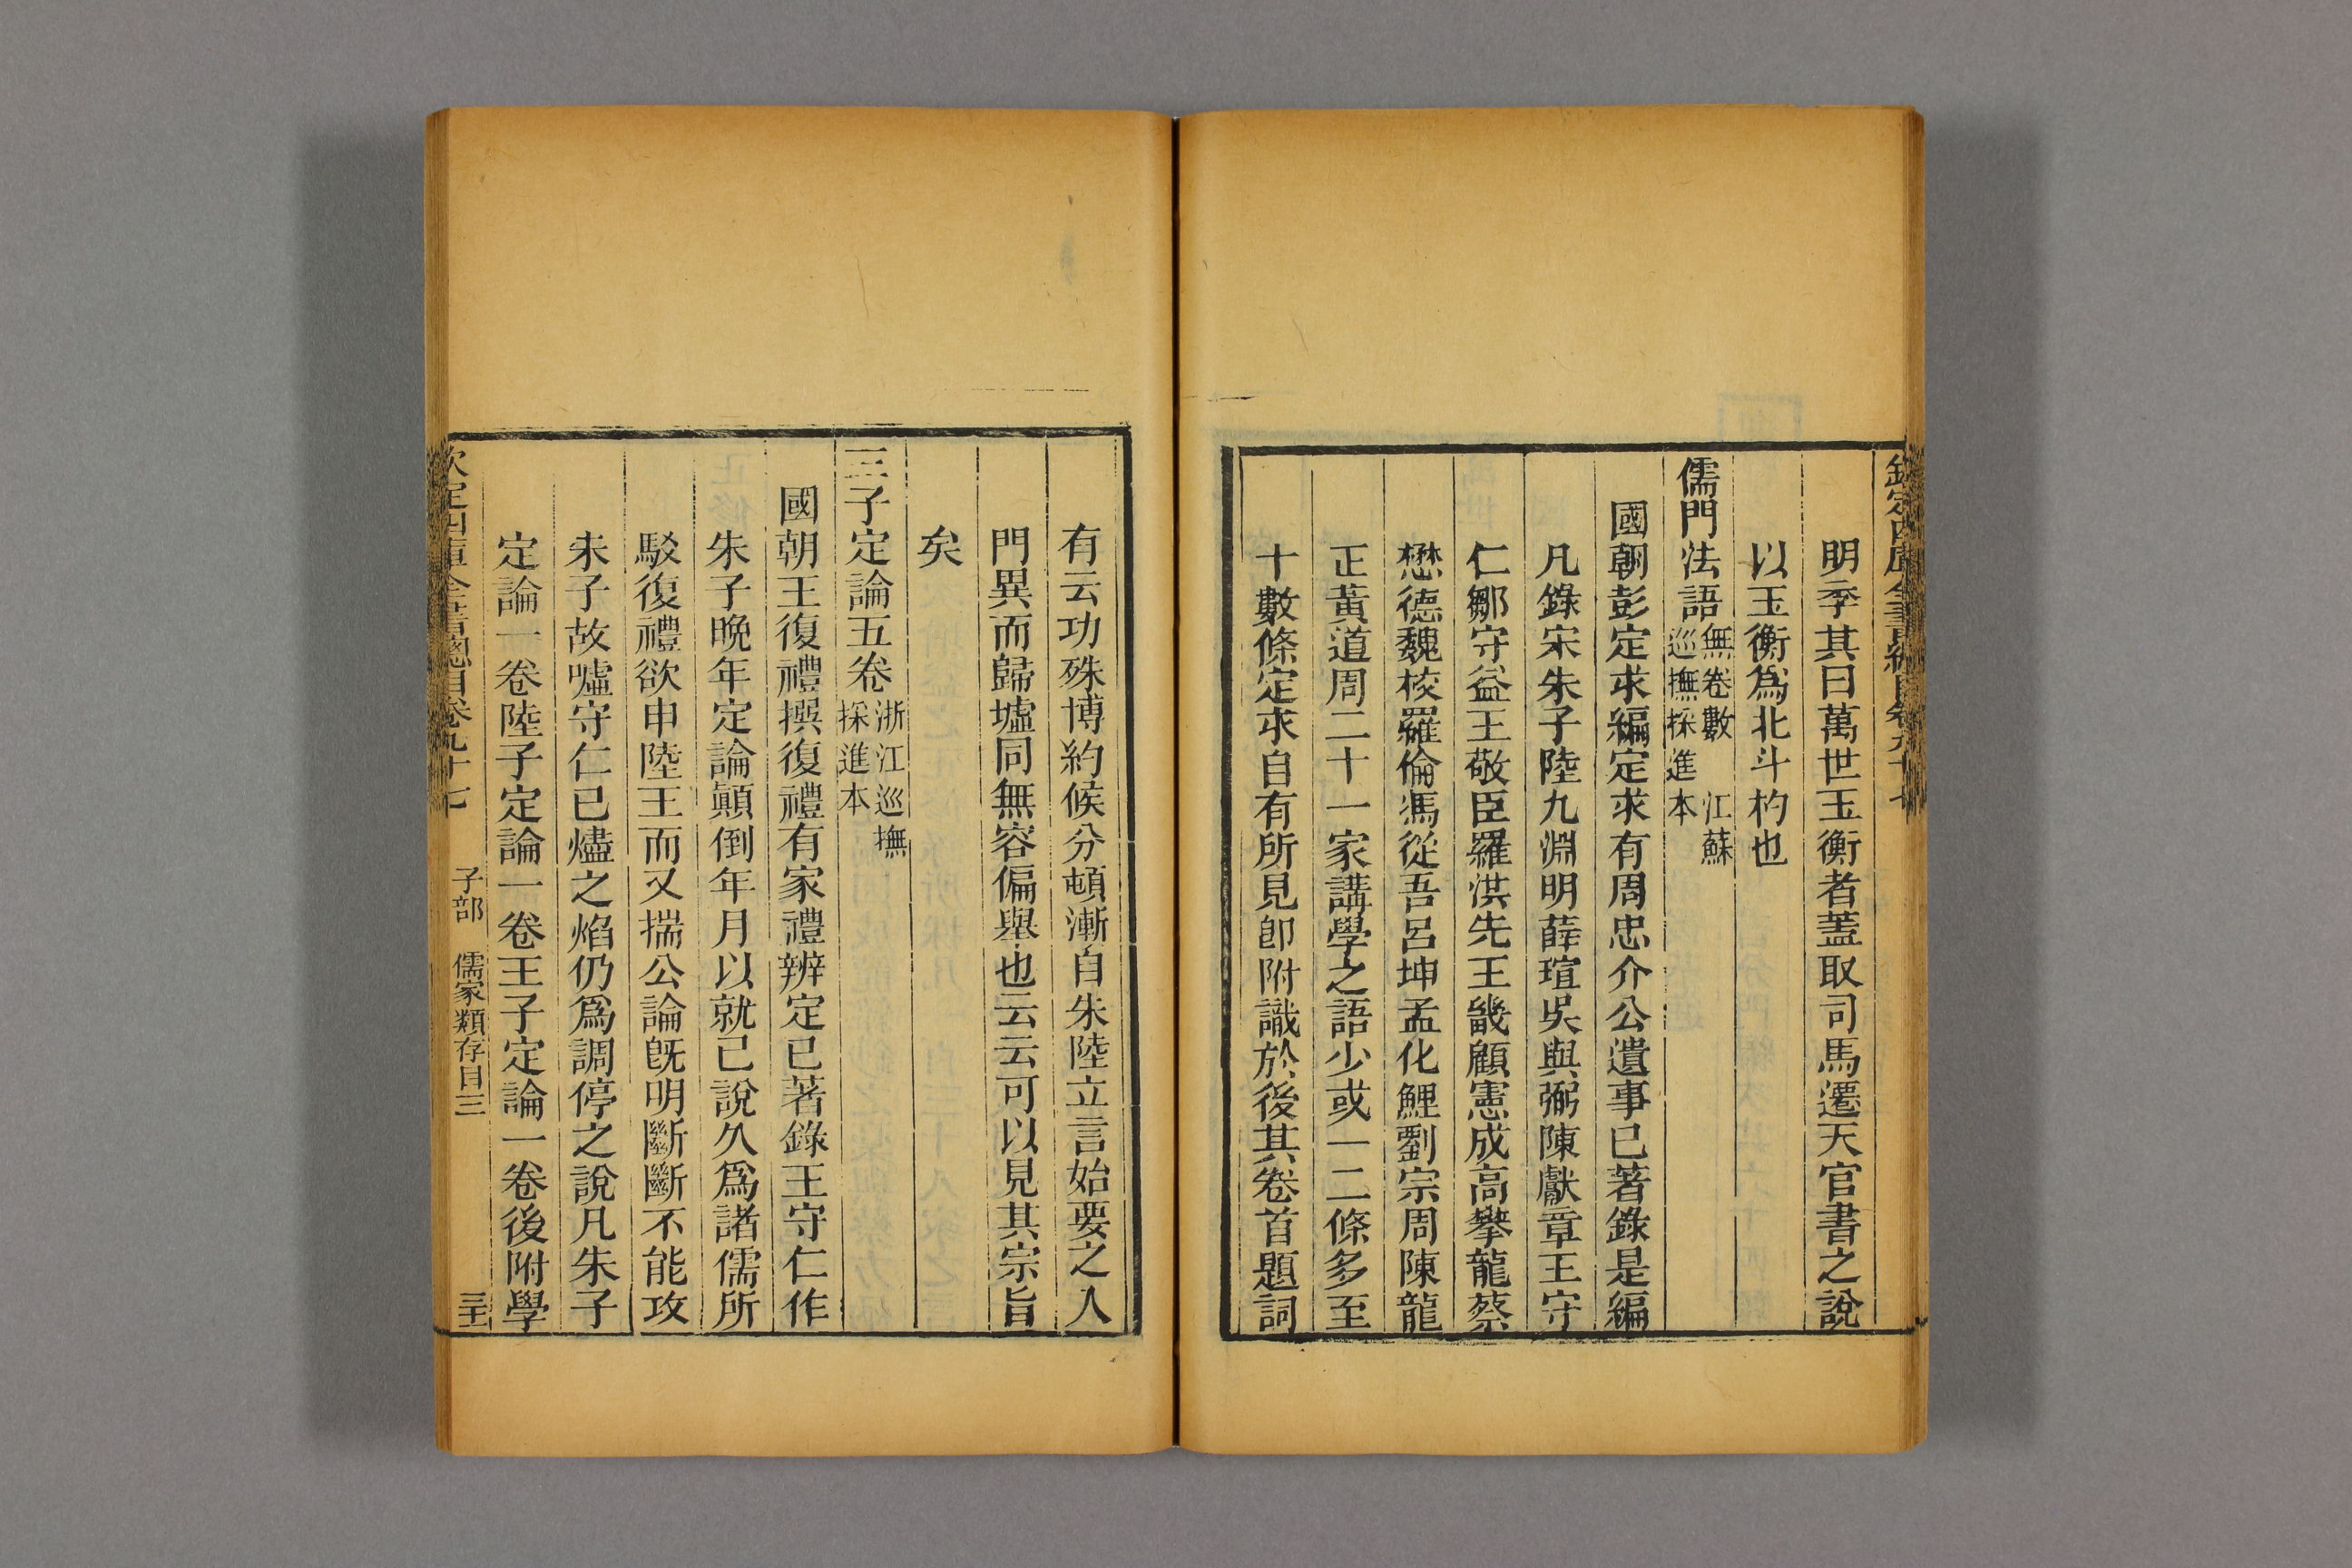 欽定四庫全書總目卷九十七
明季其曰萬世玉衡者蓋取司馬遷天官書之說
以玉衡爲北斗杓也
儒門法語無卷數 江蘇巡撫採進本
國朝彭定求編定求有周忠介公遺事已著錄是編
凡錄宋朱子陸九淵明薛瑄吳與弼陳獻章王守
仁鄒守益王敬臣羅洪先王畿顧憲成高攀龍蔡
懋德魏校羅倫馮從吾呂坤孟化鯉劉宗周陳龍
正黃道周二十一家講學之語少或一二條多至
十數條定求自有所見卽附識於後其卷首題詞
有云功殊博約候分頓漸自朱陸立言始要之入
門異而歸墟同無容偏舉也云云可以見其宗旨
矣
三子定論五卷浙江巡撫採進本
國朝王復禮撰復禮有家禮辨定已著錄王守仁作
朱子晚年定論顚倒年月以就已說久爲諸儒所
駁復禮欲申陸王而又揣公論旣明斷斷不能攻
朱子故噓守仁已燼之焰仍爲調停之說凡朱子
定論一卷陸子定論一卷王子定論一卷後附學
欽定四庫全書總目卷九十七 子部 儒家類存目三 三十